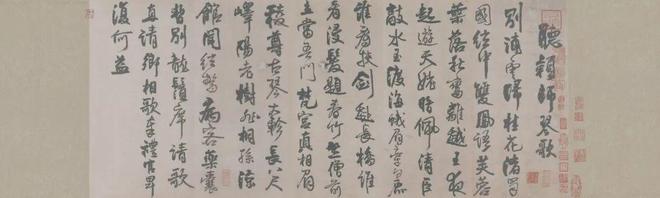 聽穎師琴歌
別浦雲歸桂花渚蜀
國絃中雙鳳語芙蓉
葉落秋鸞離越王夜
起遊天姥佩清臣
敲水玉渡海蛾眉牽白鹿
誰看挾劍赴長橋誰
看浸髮題春竹竺僧前
立當吾門梵宮真相眉
稜尊古琴大軫長八尺
嶧陽老樹非桐孫涼
館聞絃驚病客藥囊
暫別龍鬚席請歌
直請卿相歌奉禮官卑
復何益